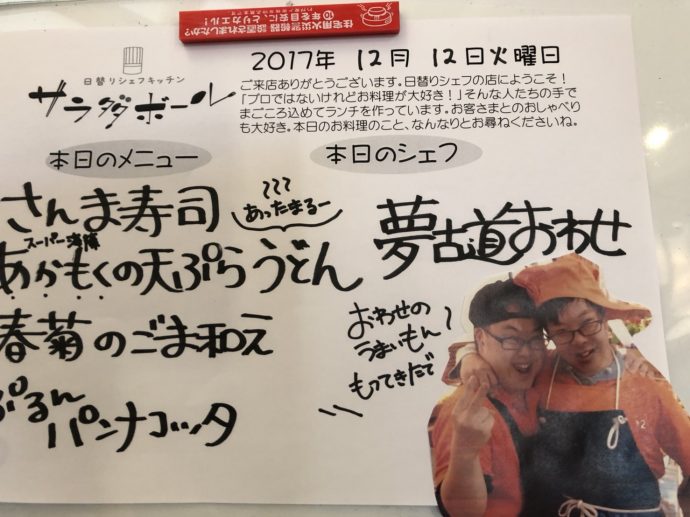 住宅用火災警報器 設置されましたか?
10年を目安に、とりカエル!
日替りシェフキッチン
サラダボール
2017年 12月 12日火曜日
ご来店ありがとうございます。日替りシェフの店にようこそ!
「プロではないけれどお料理が大好き!」そんな人たちの手で
まごころ込めてランチを作っています。お客さまとのおしゃべり
も大好き。本日のお料理のこと、なんなりとお尋ねくださいね。
本日のメニュー
さんま寿司
あったまるー
スーパー海藻
あかもくの天ぷらうどん
春菊のごま和え
ぷるん
パンナコッタ
本日のシェフ
夢古道おわせ
おわせの
うまいもん
もってきたで!